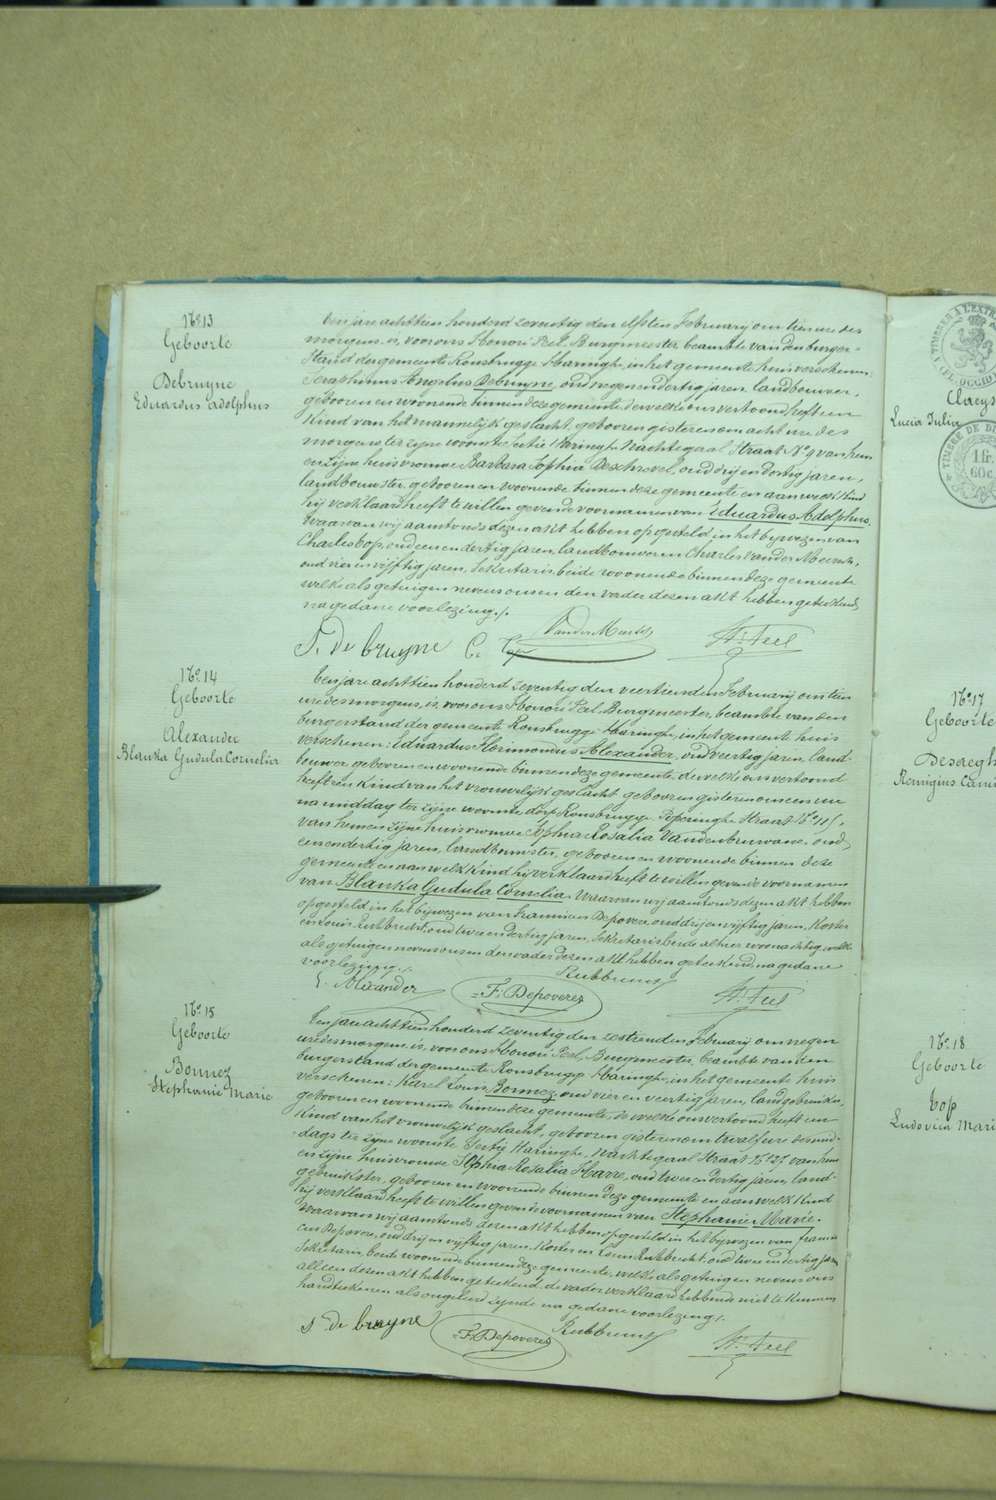 No 13
Geboorte
Debruyne
Eduardus Adolphus
Ten jare achttien honderd zeventig den elfsten February om tien ure des
morgens, is, voor ons Honoré Peel, Burgmeester, beambte van den burger-
stand der gemeente Rousbrugge Haringhe, in het gemeente huis verschenen:
Seraphinus Angelus Debruyne, oud negen en dertig jaren, landbouwer,
geboren en woonende binnen deze gemeente, dewelke ons vertoond heeft een
kind van het mannelijk geslacht, geboren gisteren om acht ure des
morgens ter zijne woonste, sectie Haringhe Nachtegaal Straat No 9 van hem
en zijne huisvrouwe Barbara Sophia, oud drij en dertig jaren,
landbouwster, geboren en woonende binnen deze gemeente en aan welk kind
hij verklaard heeft te willen geven de voornamen van Eduardus Adolphus.
Waarvan wij aanstonds dezen akt hebben opgesteld in het bijwezen van
Charles Top, oud een en dertig jaren, landbouwer en Charles Vander Meersch,
oud vier en vijftig jaren, Sekretaris, beide woonende binnen deze gemeente
welke als getuigen nevens ons en den vader dezen akt hebben geteekend,
na gedane voorlezing ./.
S. De bruyne C. Top VanderMeersch H. Peel
No 14
Geboorte
Alexander
Blanka Gudula Cornelia
Ten jare achttien honderd zeventig den veertienden February om tien
ure des morgens, is, voor ons Honoré Peel, Burgmeester, beambte van den
burgerstand der gemeente Rousbrugge Haringhe, in het gemeente huis
verschenen: Eduardus Florimondus Alexander, oud veertig jaren, land-
bouwer geboren en woonende binnen deze gemeente, dewelke ons vertoond
heeft een kind van het vrouwelijk geslacht geboren gisteren om een ure
na middag ter zijne woonste, dorp Rousbrugge, Poperinghe Straat No
van hem en zijne huisvrouwe Sophia Rosalia Vandenbruwane, oud,
een en dertig jaren, landbouwster, geboren en woonende binnen deze
gemeente en aan welk kind hij verklaard heeft te willen geven de voornamen
van Blanka Gudula Cornelia. Waarvan wij aanstonds dezen akt hebben
opgesteld in het bijwezen van Francis Depovere, oud drij en vijftig jaren, Koster
en Louis Rubbrecht, oud twee en dertig jaren, Sekretaris beide alhier woonachtig, welke
als getuigen nevens ons en den vader dezen akt hebben geteekend, na gedane
voorlezing ./.
E. Alexander F. Depoverez Rubbrecht H. Peel
No 15
Geboorte
Bonnez
Stephanie Marie
Ten jare achttien honderd zeventig den zestienden February om negen
ure des morgens, is, voor ons Honoré Peel, Burgmeester, beambte van den
burgerstand der gemeente Rousbrugge Haringhe, in het gemeente huis
verschenen: Karel Louis Bonnez, oud vier en veertig jaren, landgebruiker,
geboren en woonende binnen deze gemeente, dewelke ons vertoond heeft een
kind van het vrouwelijk geslacht, geboren gisteren om twaalf ure des mid-
dags ter zijne woonste Sectie Haringhe, Nachtegaal Straat No 27 van hem
en zijne huisvrouwe Sophia Rosalia Harre, oud twee en dertig jaren, land-
gebruikster, geboren en woonende binnen deze gemeente en aan welk kind
hij verklaard heeft te willen geven de voornamen van Stephanie Marie.
Waarvan wij aanstonds dezen akt hebben opgesteld in het bijwezen van Francis
Depovere, oud drij en vijftig jaren, Koster en Louis Rubbrecht, oud twee en dertig jaren
Sekretaris, beide woonende binnen deze gemeente, welke als getuigen nevens ons
alleen dezen akt hebben geteekend, de vader verklaard hebbende niet te kunnen
handteekenen als ongeleerd zijnde na gedane voorlezing ./.
S De bruyne F. Depoverez Rubbrecht H. Peel
TIMBRE DE DI
1 fr.
60c
Claeys
Lucia Julia
No 17
Geboorte
Desaegh
Remigius Cami
No 18
Geboorte
Top
Ludovica Mari